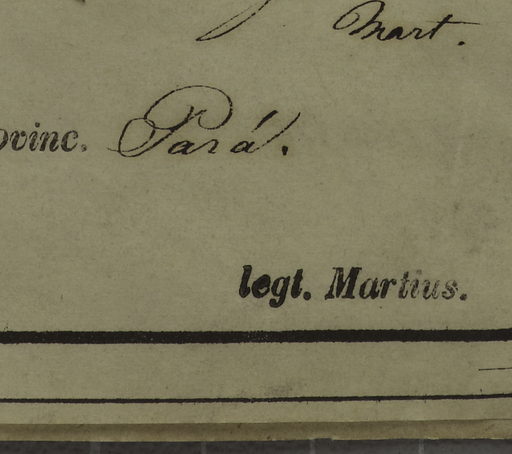 Mart.
ovinc. Pará.
legt. Martius.